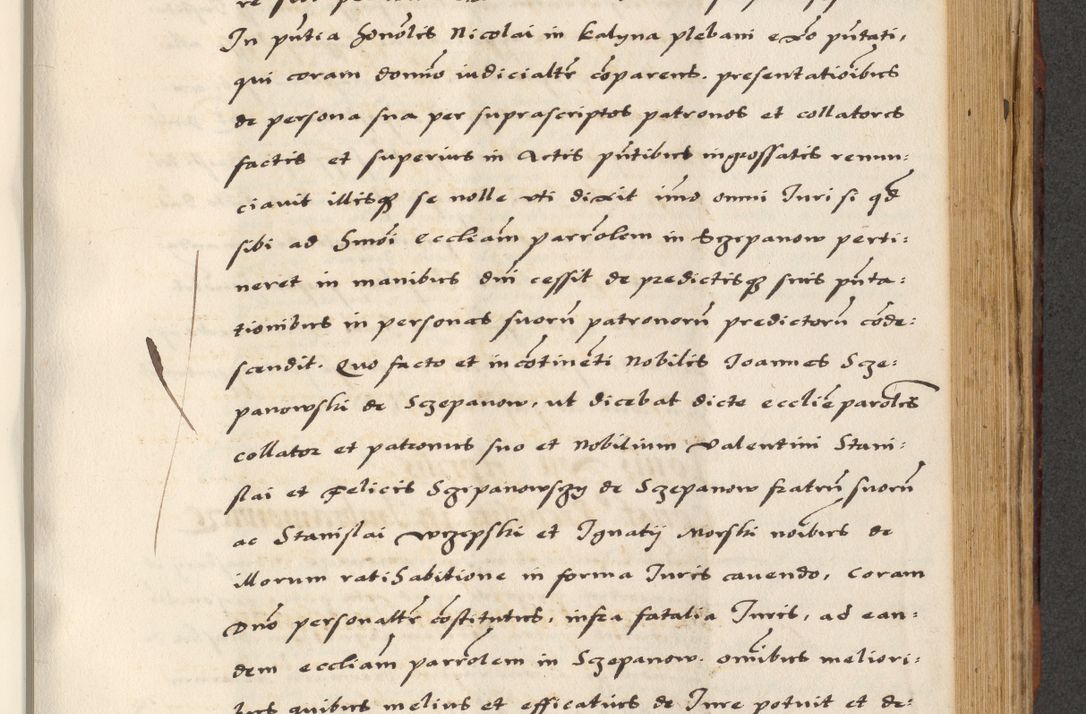 In pñtia honõlis Nicolai in Kalyna plebani exõ pñtati,
qui coram domño iudicialtr̃ cõparens. presentatiõibus
de persona sua per suprascriptos patronos et collatores
factis et superius in Actis pñtibus ingrossatis renun:
ciavit illisq₃ se nolle uti dixit imo omni Iuri si qd̃
sibi ad Eccliam parrõlem in Sczepanow perti:
neret in manibus dñi cessit de predictisq₃ suis pñta:
tionibus in personas suorũ patronorũ predictorũ cõde:
scendit. Quo facto et in cõtinẽti Nobilis Ioannes Scze:
panowski de Sczepanow, ut dicebat dicte ecclĩe parolis
collator et patronus suo et Nobilium Valentini Stani:
slai et Felicis Sczepanowsczy de Sczepanow fratrũ suorũ
ac Stanislai Wczepski et Ignatij Morski noibus de
illorum ratihabitione in forma Iuris cavendo, coram
Dño personaltr̃ cõstitutus, infra fatalia Iuris, ad ean:
dem eccliam parrõlem in Sczepanow. omibus meliori:
bus quibus melius et efficatius de Iure potuit et de: